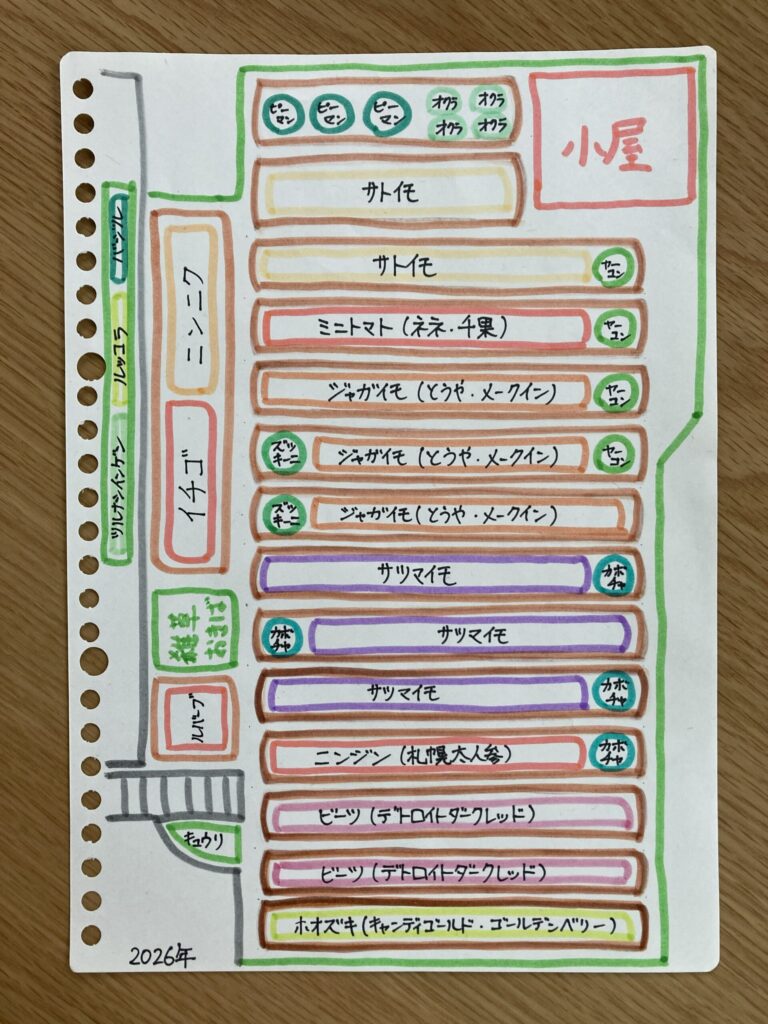 ピーマン
ピーマン
ピーマン
オクラ
オクラ
オクラ
オクラ
小屋
サトイモ
サトイモ
ヤーコン
ミニトマト(ネネ・千果)
ヤーコン
ジャガイモ(とうや・メークイン)
ヤーコン
ズッキーニ
ジャガイモ(とうや・メークイン)
ヤーコン
ズッキーニ
ジャガイモ(とうや・メークイン)
サツマイモ
カボチャ
カボチャ
サツマイモ
サツマイモ
カボチャ
ニンジン(札幌太人参)
カボチャ
ビーツ(デトロイトダークレッド)
ビーツ(デトロイトダークレッド)
ホオズキ(キャンディゴールド・ゴールデンベリー)
バジル
ルッコラ
ツルナシインゲン
ニンニク
イチゴ
雑草
おきば
ルバーブ
キュウリ
2026年